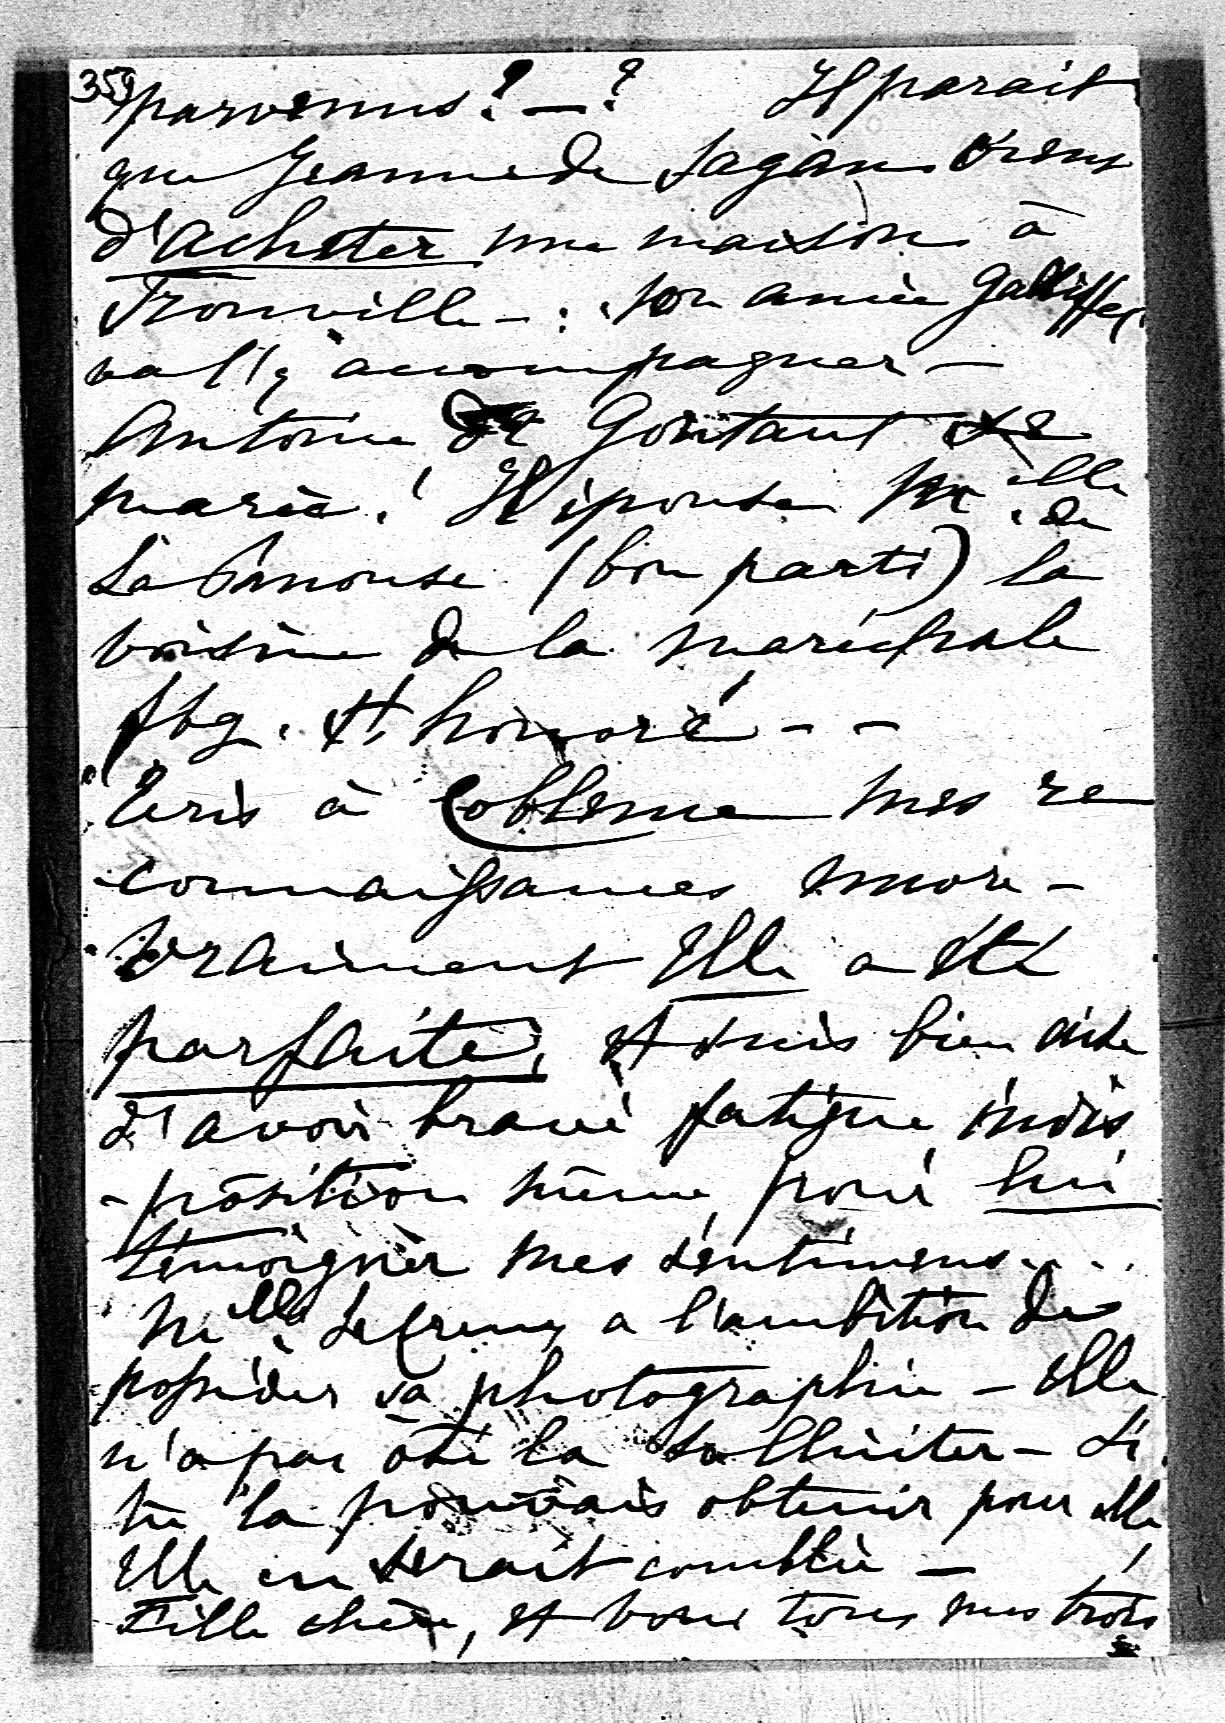 359
parvenus ? — ? Il parait
que Jeanne de Sagan vient
d'acheter une maison à
Trouville — : son amie Galliffet
va l'y accompagner —
Antoine de Gontaut se
marie ! Il épouse Melle de
La Panouse (bon parti) la
voisine de la maréchale
fbg. St honoré - -
Ecris à Coblence mes re
connaissances encore -
vraiment Elle a été
parfaite, et suis bien aise
d'avoir bravé fatigue indis
-position même pour lui
témoigner mes sentimens . . .
Melle de a l'ambition de
posséder sa photographie — Elle
n'a pas osé la solliciter — Si
tu la pouvais obtenir pour elle,
Elle en serait comblée — !
Fille chère, et vous tous mes trois